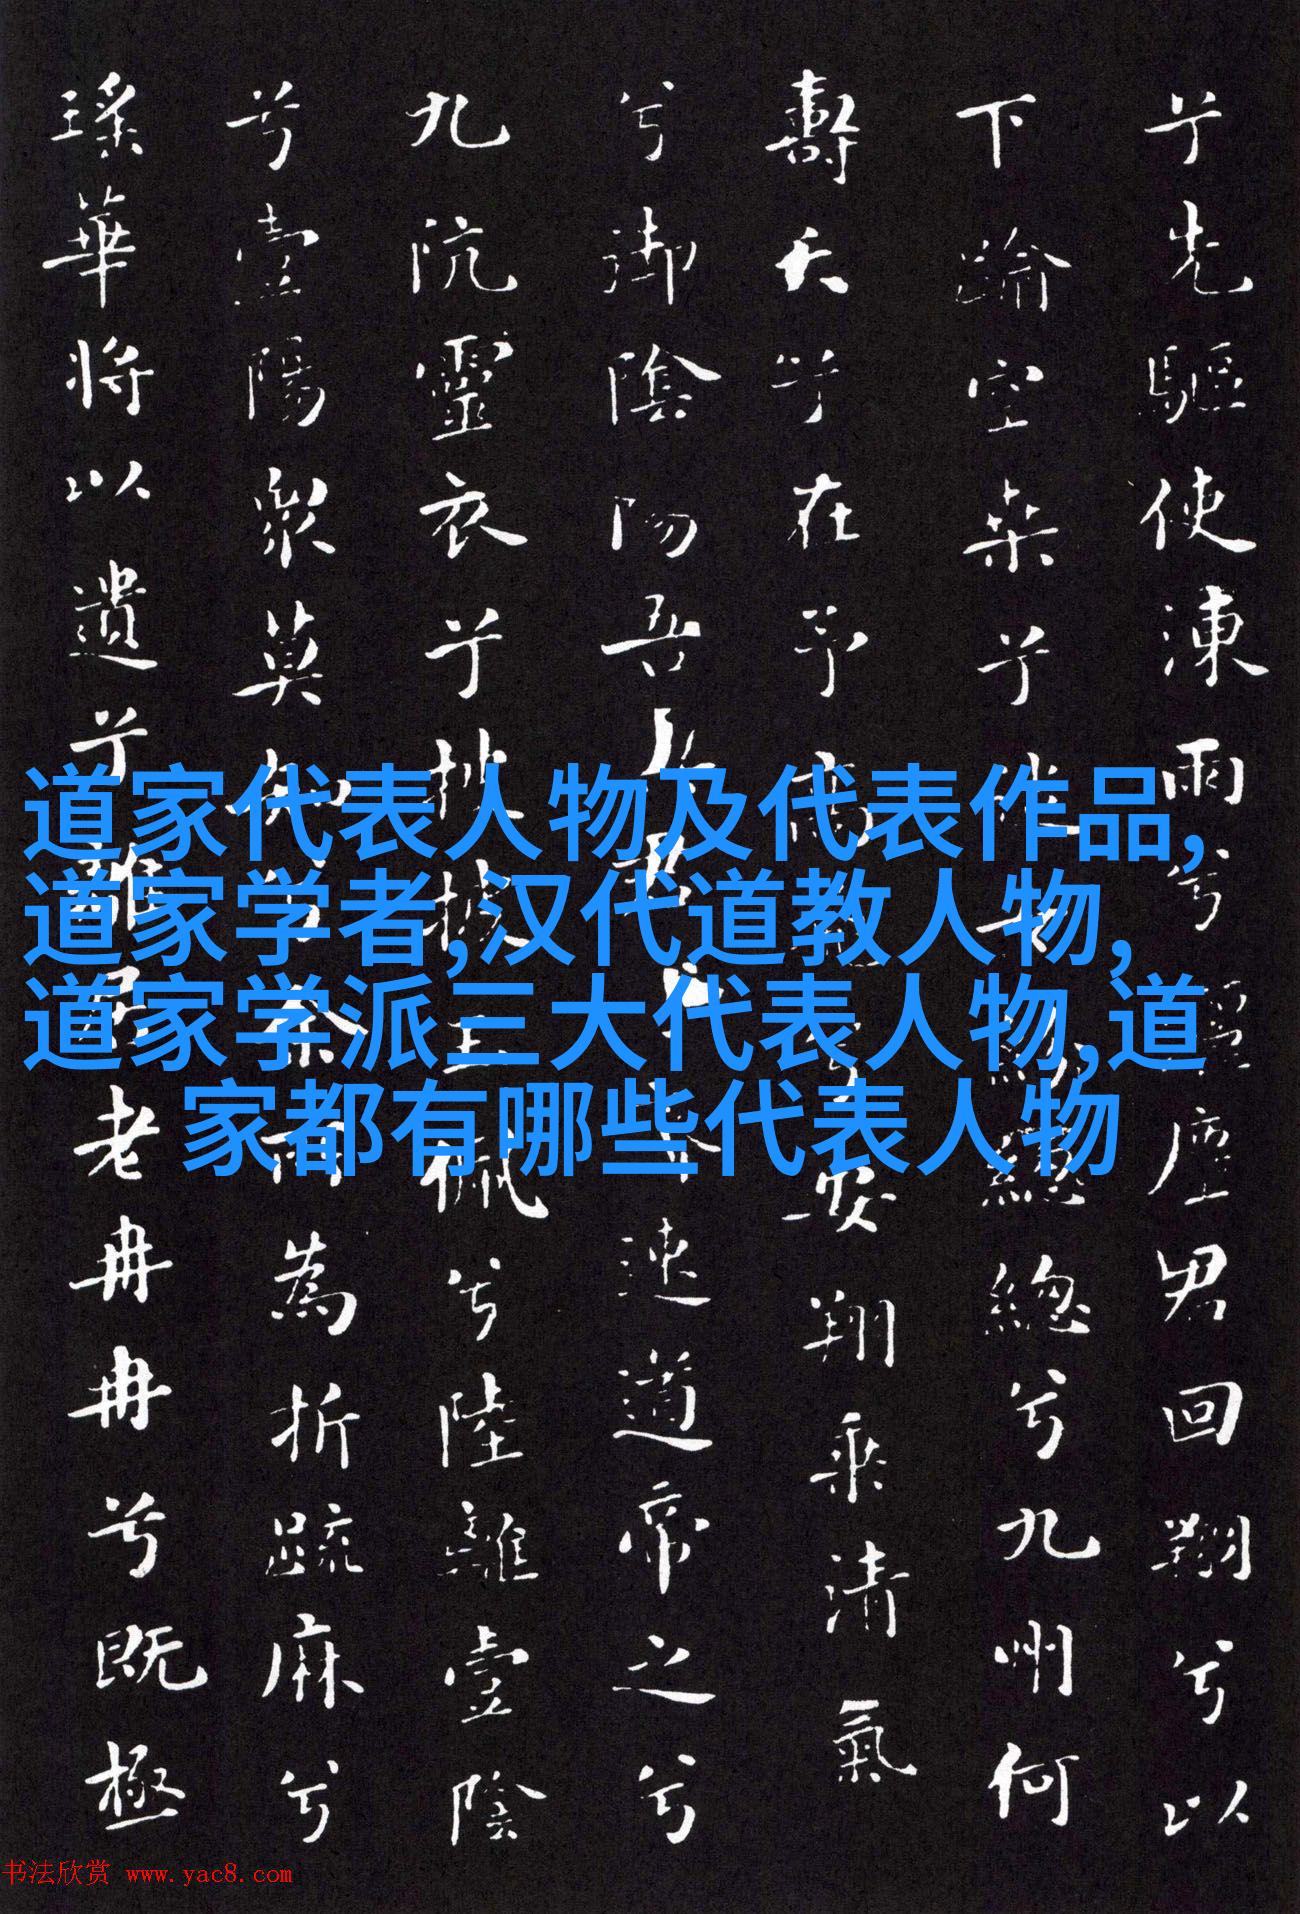 兮先驅使涷雨兮灑塵君回翔兮以
下踰空桒兮從女紛總總兮九州何
壽夭兮在予高飛兮安翔乘清氣
兮御陰陽吾與君兮速道帝之兮
九阬靈衣兮披披玉佩兮陸離壹陰
兮壹陽衆莫知兮余所為折疏麻兮
瑤華將以遺兮離居老冉冉兮既極
道家代表人物及代表作品,
道家学者,汉代道教人物,
道家学派三大代表人物,道
家都有哪些代表人物
书法欣赏 www.yac8.com